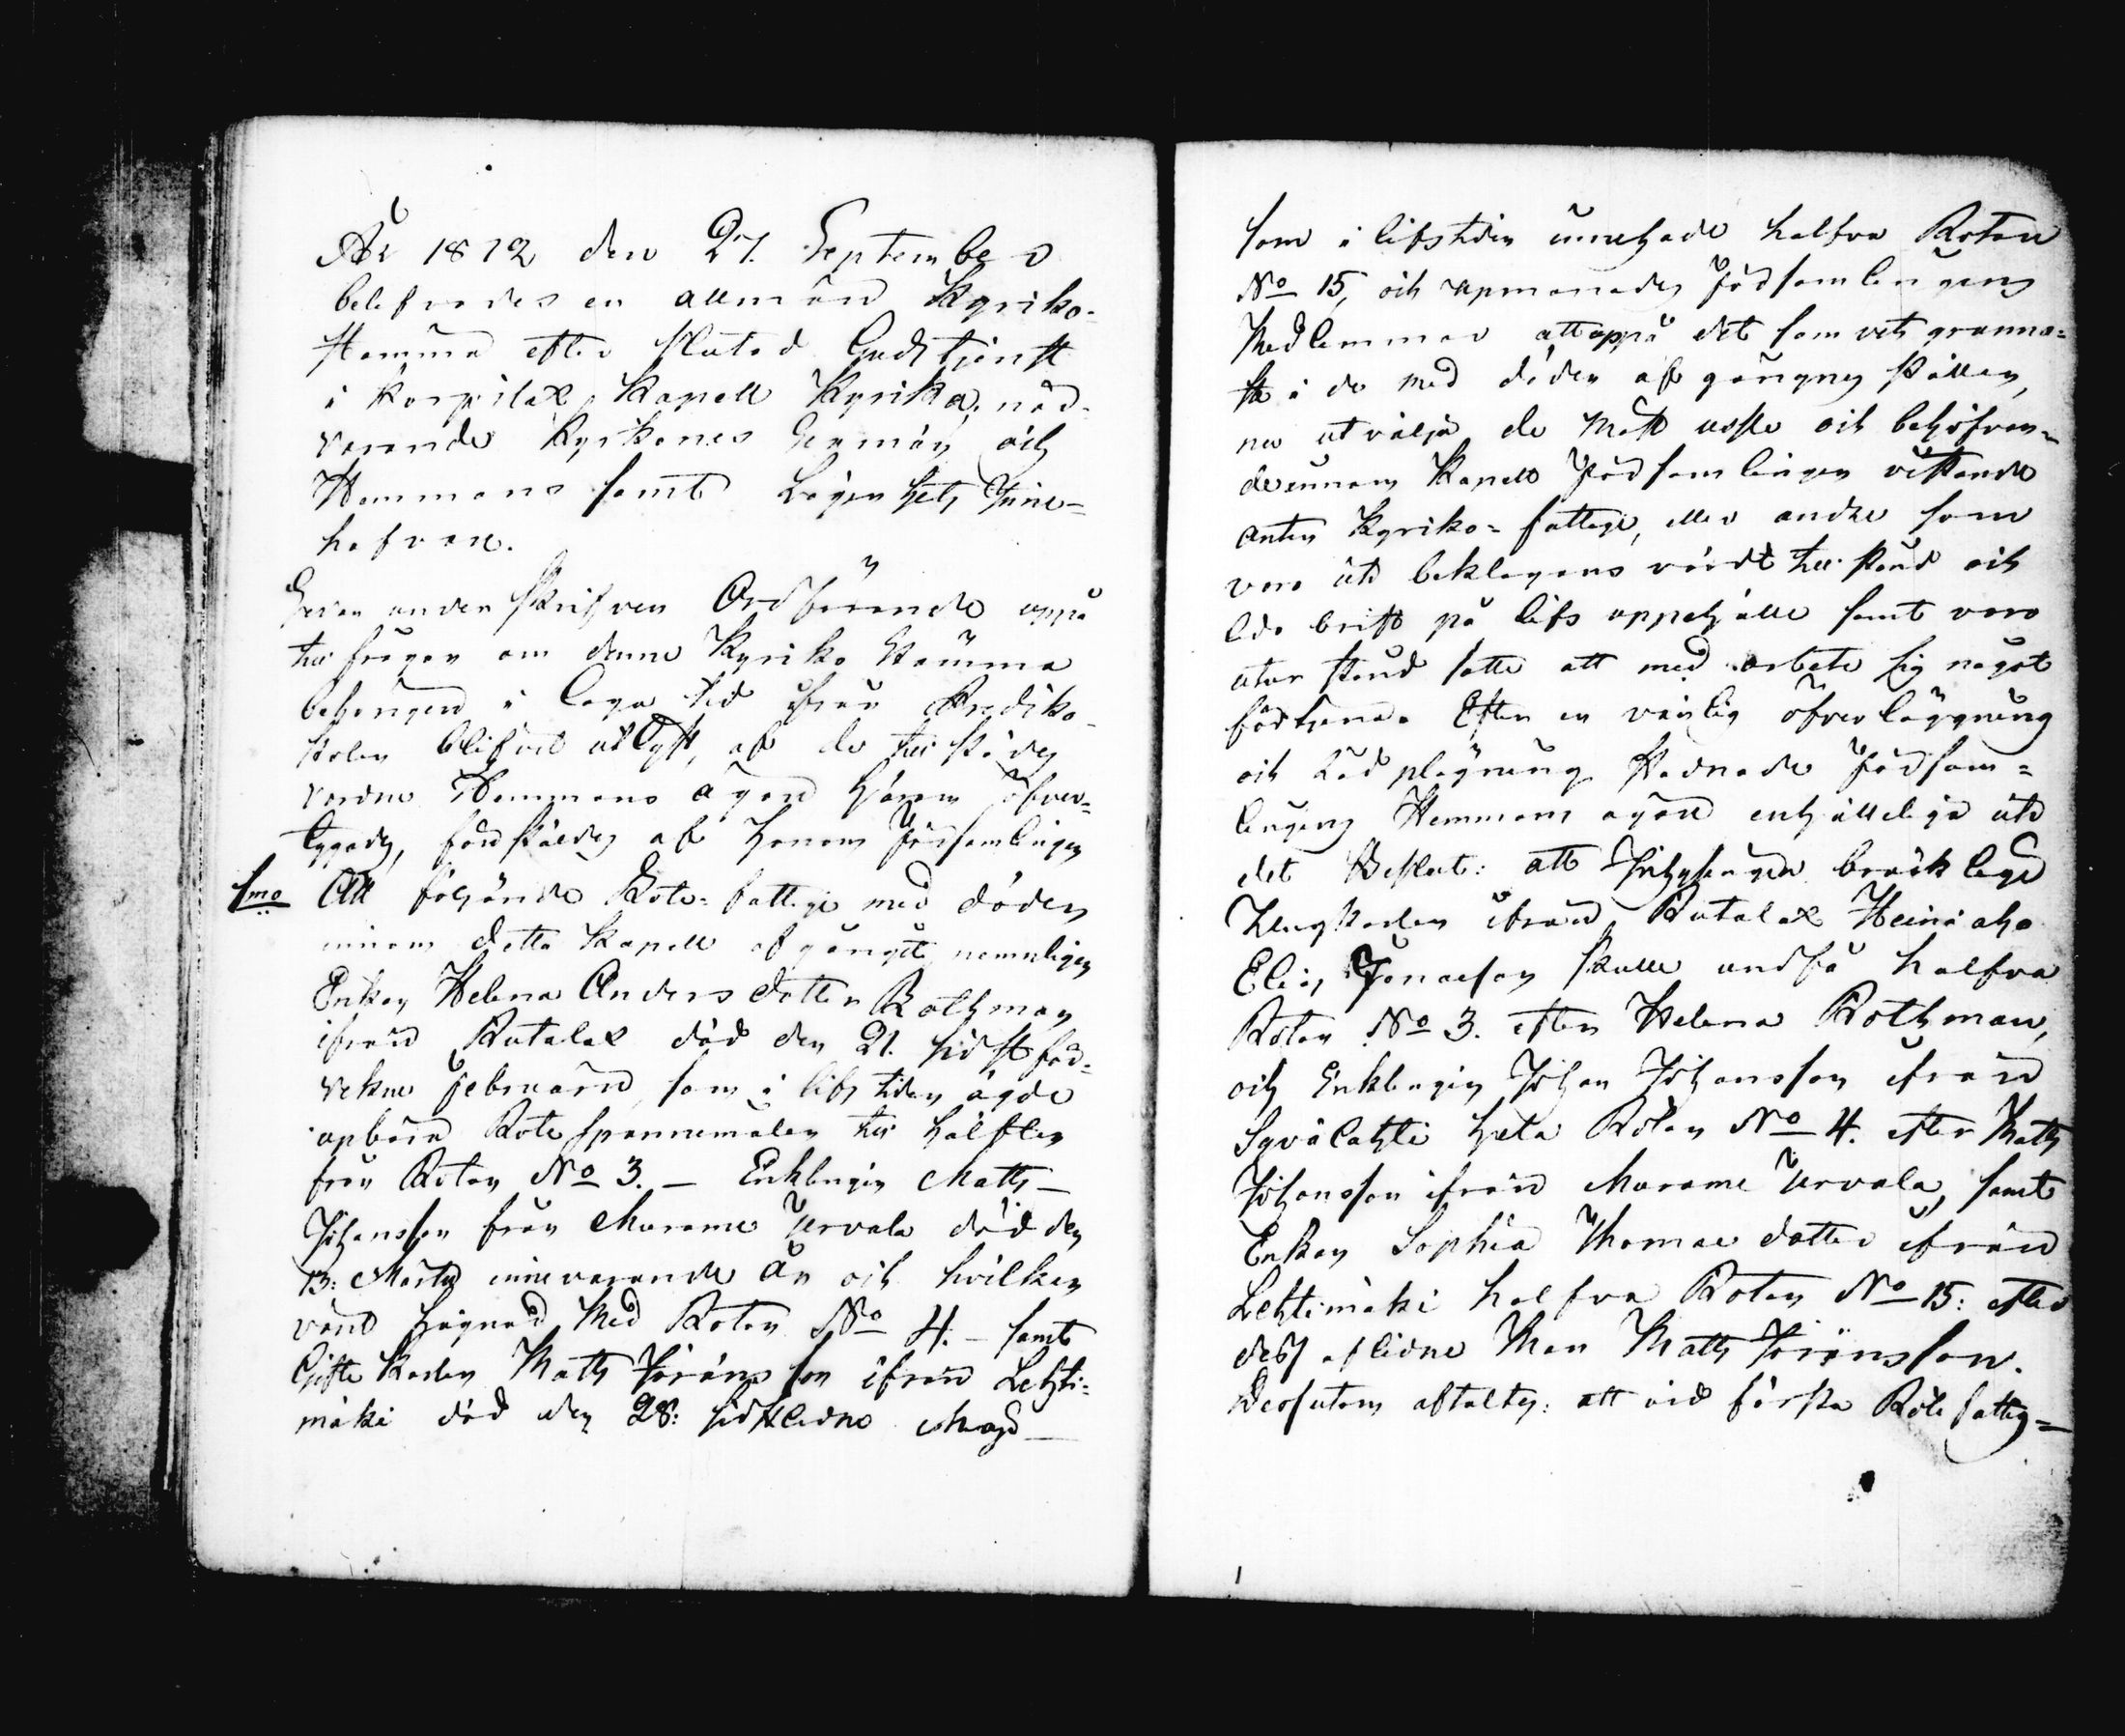 År 1812 den 27. September
belefvades en allmän Kyriko-
stämma efter slutad Gudstjenst
i Korpilax Kapell Kyrika, när-
varande Kyrkones Sexmän och
Hemmans samt Lägenhets Inne-
hafvare.
Sedan under skrifven Ordförande uppå
tillfrågan om denne Kyriko Stämma
behörigen i laga tid ifrån Prediko-
stolen blifvit utlyst, af de tillstädes
vardne Hemmans ägare härom öfver-
tygades, förestäldes af honom Församlingen
1mo Att följande Rote-fattige med döden
innom detta Kapell afgångit, nemnligen
Enkan Helena Anders dotter Rothman
ifrån Rutalax död den 21. sidstför-
vekne Februarii, som i lifstiden ägde
upbära Rote Spannemålen till hälften
från Roten No 3. — Enklingen Matts
Johansson från Murame Urvala död den
13: Martii innevarande År och hvilken
varit hägnad Med Roten No 4. — samt
Gifte Karlen Matts Göransson ifrån Lehti-
mäki död den 28: sidstledne Maji
som i lifstiden innehade halfva Roten
No 15, och upmanades Församlingens
Medlemmar att uppå det samvets granna-
ste i de med döden afgångnes ställen,
nu utvälja de mäst usle och behöfvan-
de innom Kapell Församlingen vistande
anten Kyriko-fattige, eller andre som
voro uti beklagansvärdt tillstånd och
lida brist på lifs uppehälle samt voro
utur stånd satte att med arbete sig något
förtjena. Efter en vänlig öfverläggning
och Rådplägning stadnade Församlingens
Hemmans ägare enhälleligen uti
det Beslut: att Inhysingen bräcklige
Ungkarlen ifrån Rutalax Heinäaho
Elias Jonasson skulle undfå halfva
Roten No 3. efter Helena Rothman,
och Enklingen Johan Johansson ifrån
Syvälahti hela Roten No 4. efter Matts
Johansson ifrån Murame Urvala, samt
Enkan Sophia Thomae dotter ifrån
Lehtimäki halfva Roten No 15: efter
dess aflidne Man Matts Göransson.
Dessutom aftaltes: att vid första Rote fattig-